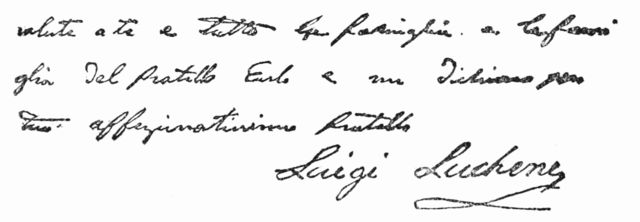 salute a te e tutto la famiglia e la fami
glia del fratello Carlo e mi dichiaro per
tuo affezinatissimo fratello
Luigi Lucheni